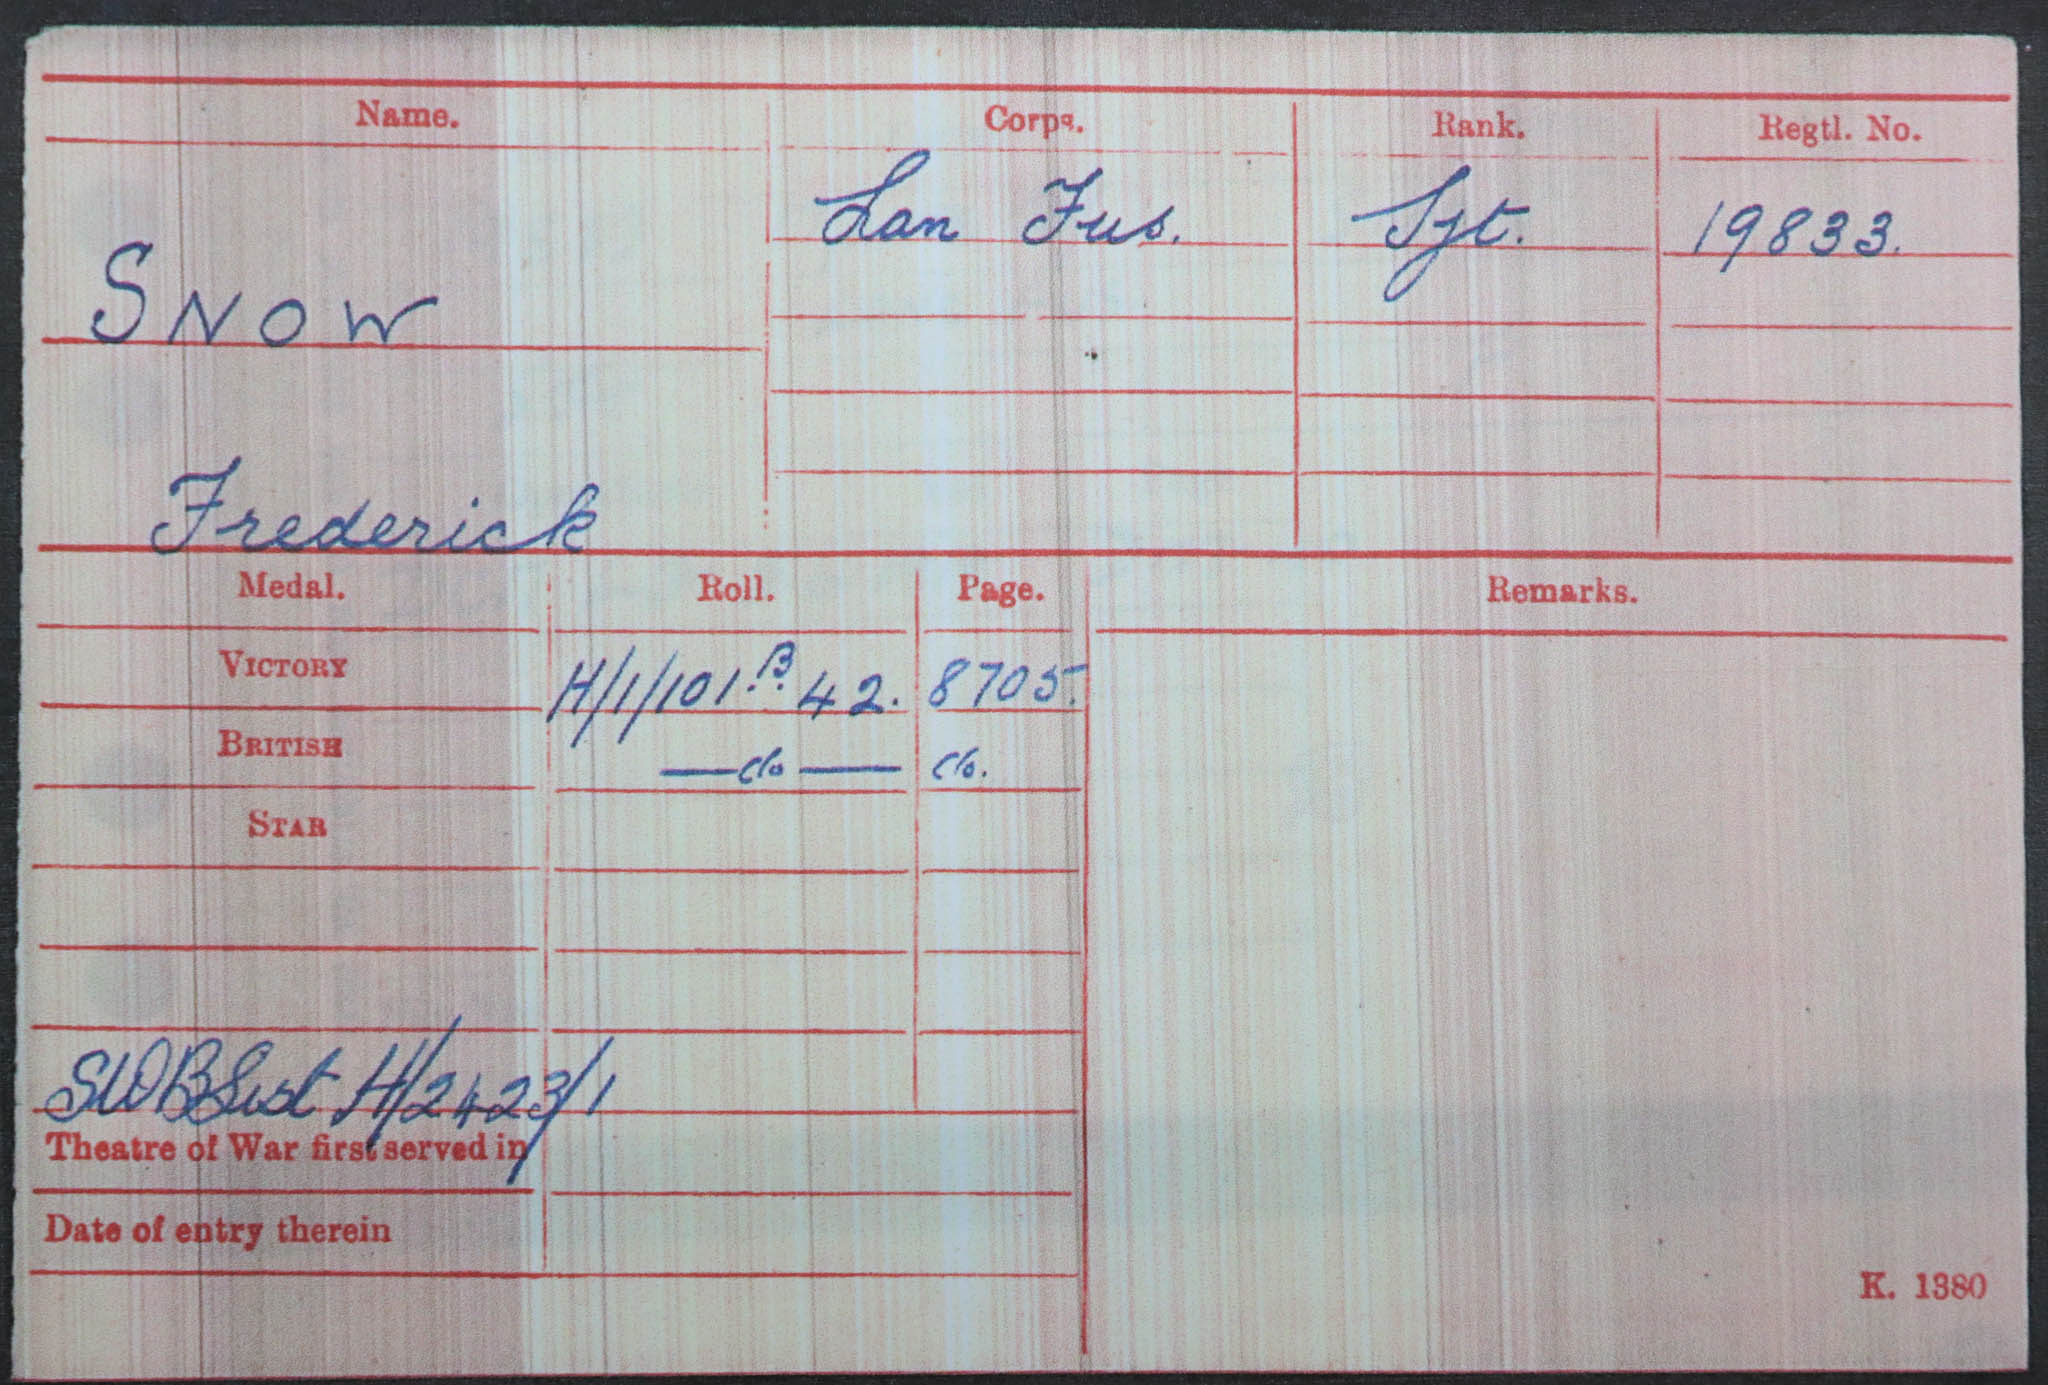 Name. Corps. Rank. Regtl. No.
Lan Fus. Sjt. 19833.
SNOW
Frederick
Medal. Roll. Page. Remarks.
VICTORY H/1/101.B. 42. 8705.
BRITISH —do— do.
STAR
SWB List H/2423/1
Theatre of War first served in
Date of entry therein
K. 1380